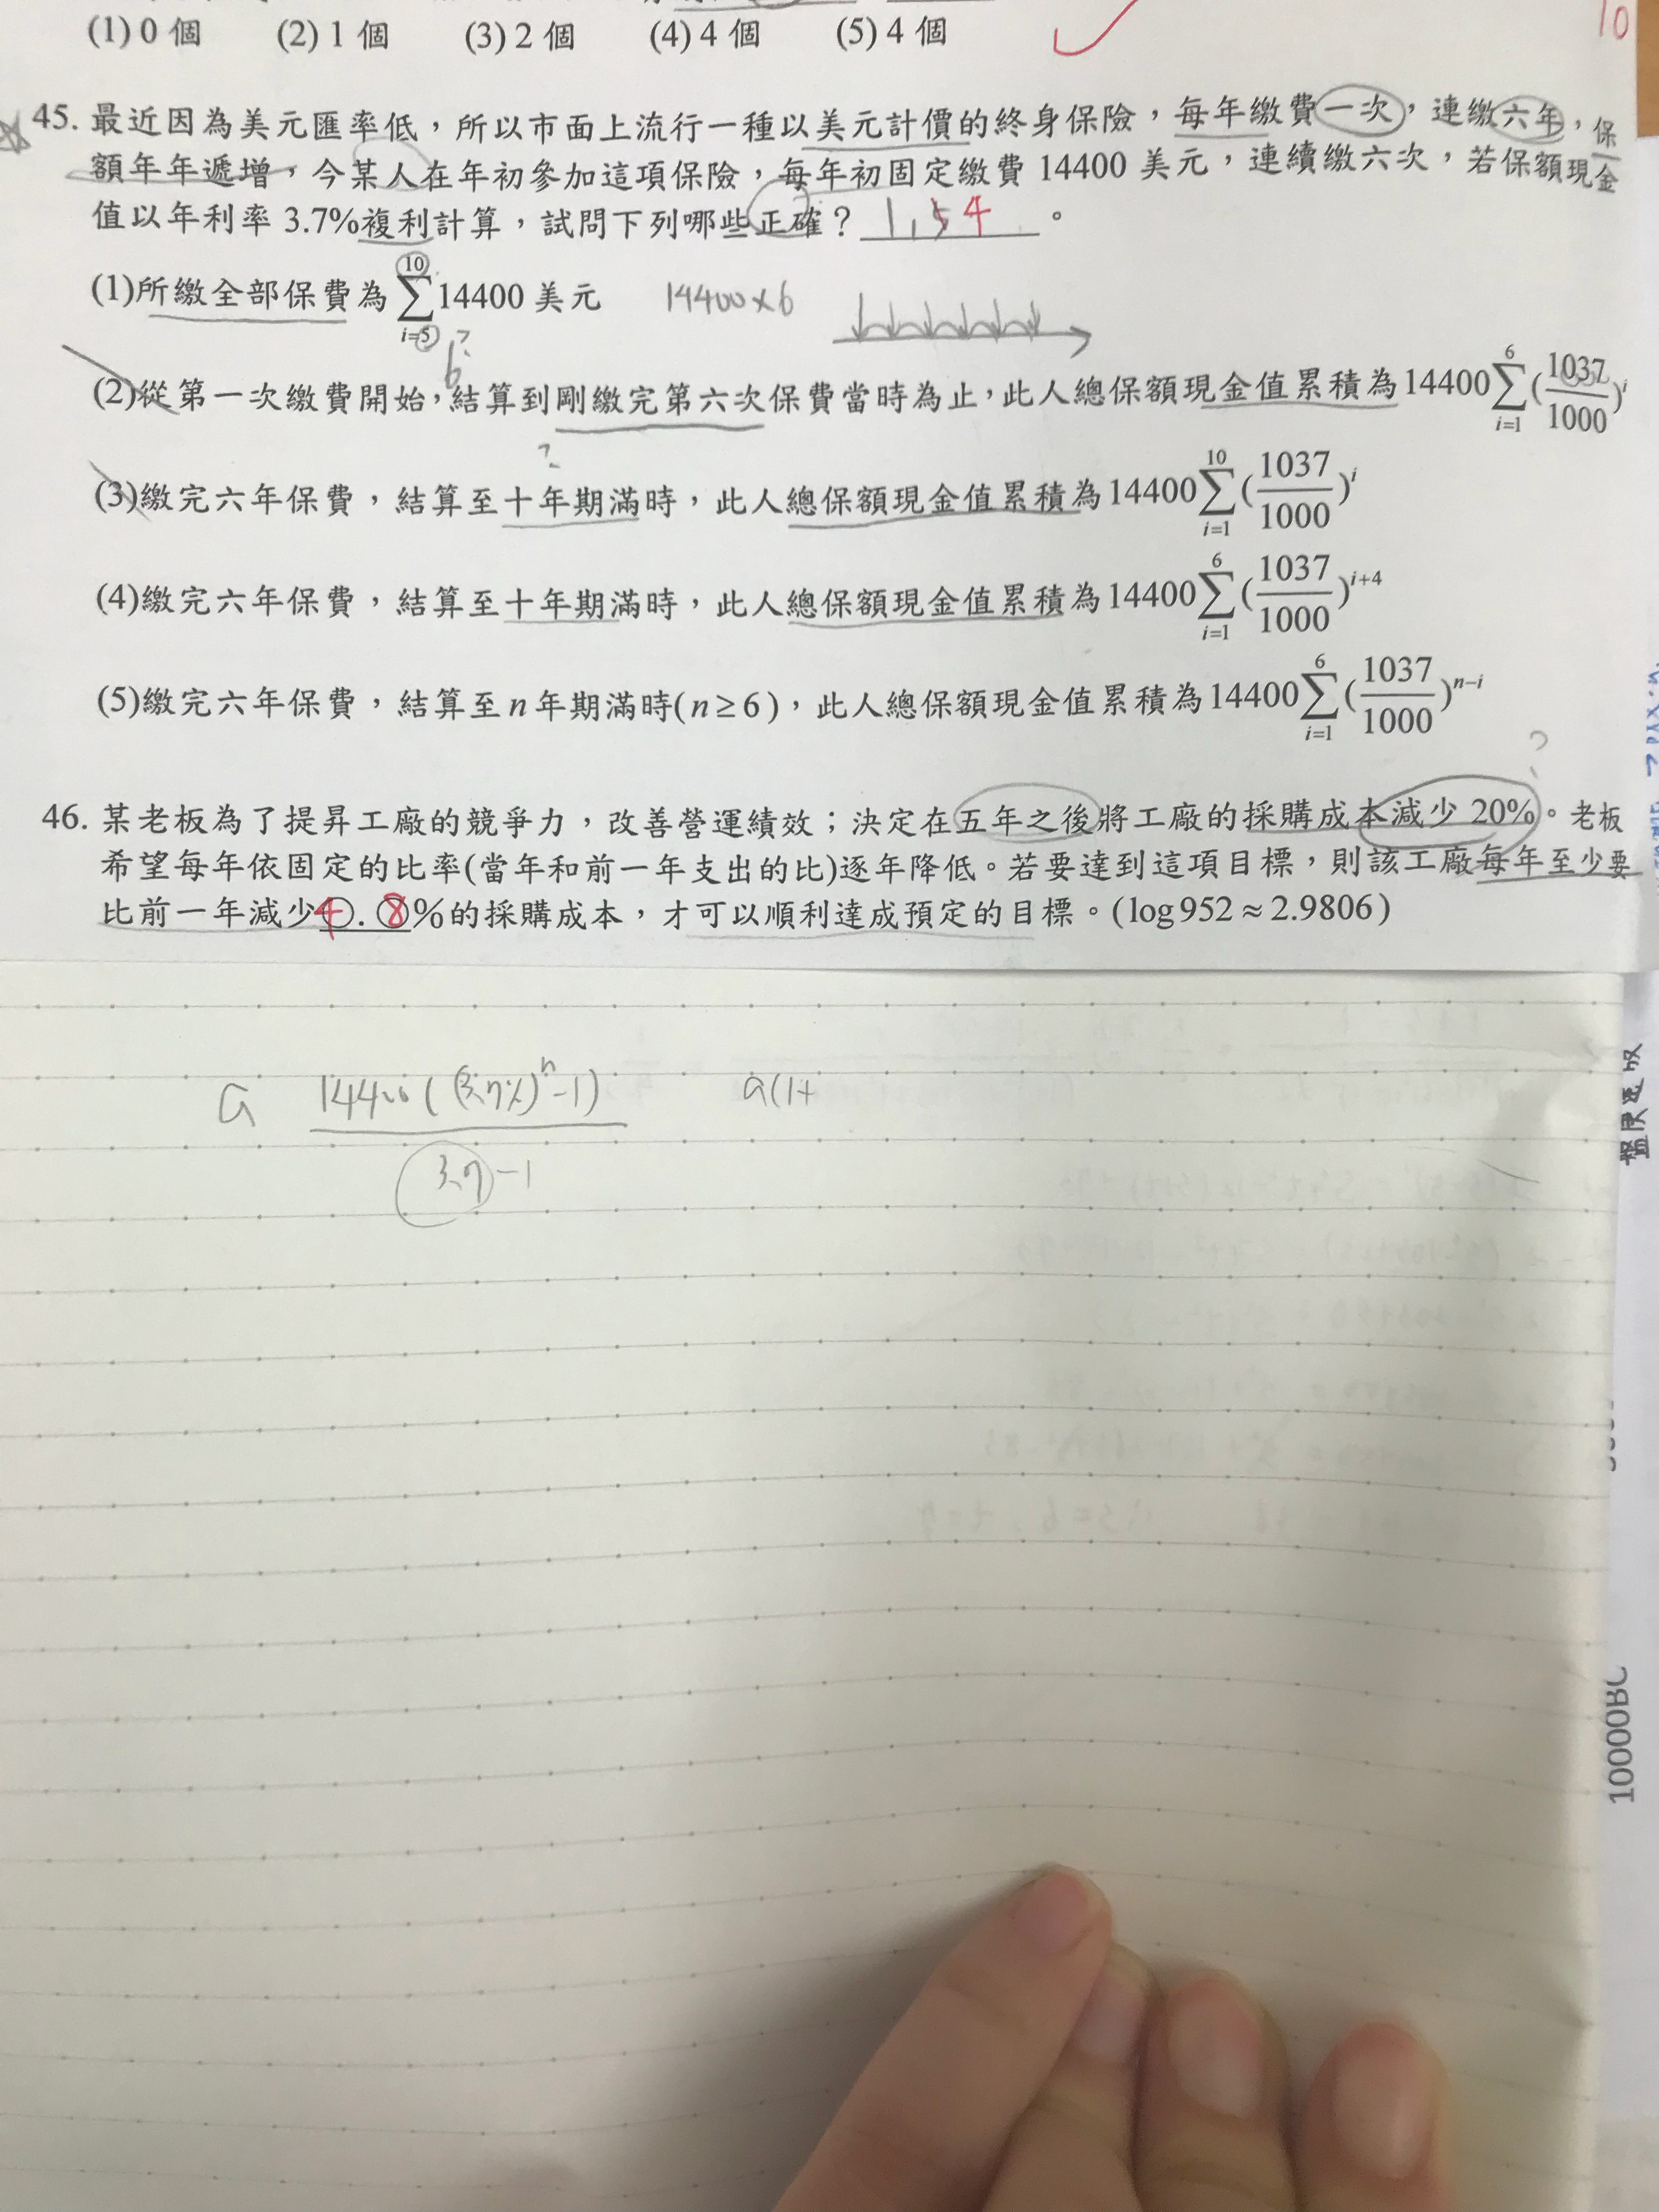 (1) 0 個 (2) 1 個 (3) 2 個 (4) 4 個 (5) 4 個
10
45. 最近因為美元匯率低，所以市面上流行一種以美元計價的終身保險，每年繳費一次，連繳六年，保
額年年遞增，今某人在年初參加這項保險，每年初固定繳費 14400 美元，連續繳六次，若保額現金
值以年利率 3.7%複利計算，試問下列哪些正確？ 1,54 。
(1)所繳全部保費為 \sum_{i=5}^{10} 14400 美元 14400×6
6 ?
(2)從第一次繳費開始，結算到剛繳完第六次保費當時為止，此人總保額現金值累積為 14400 \sum_{i=1}^{6} (\frac{1037}{1000})^i
?
(3)繳完六年保費，結算至十年期滿時，此人總保額現金值累積為 14400 \sum_{i=1}^{10} (\frac{1037}{1000})^i
(4)繳完六年保費，結算至十年期滿時，此人總保額現金值累積為 14400 \sum_{i=1}^{6} (\frac{1037}{1000})^{i+4}
(5)繳完六年保費，結算至 n 年期滿時(n ≥ 6)，此人總保額現金值累積為 14400 \sum_{i=1}^{6} (\frac{1037}{1000})^{n-i}
?
46. 某老板為了提昇工廠的競爭力，改善營運績效；決定在五年之後將工廠的採購成本減少 20%。老板
希望每年依固定的比率(當年和前一年支出的比)逐年降低。若要達到這項目標，則該工廠每年至少要
比前一年減少 4 . 8 %的採購成本，才可以順利達成預定的目標。(log 952 ≈ 2.9806)
a \frac{14400((3.7%)^n -1)}{3.7 -1} a(1+
10000BC